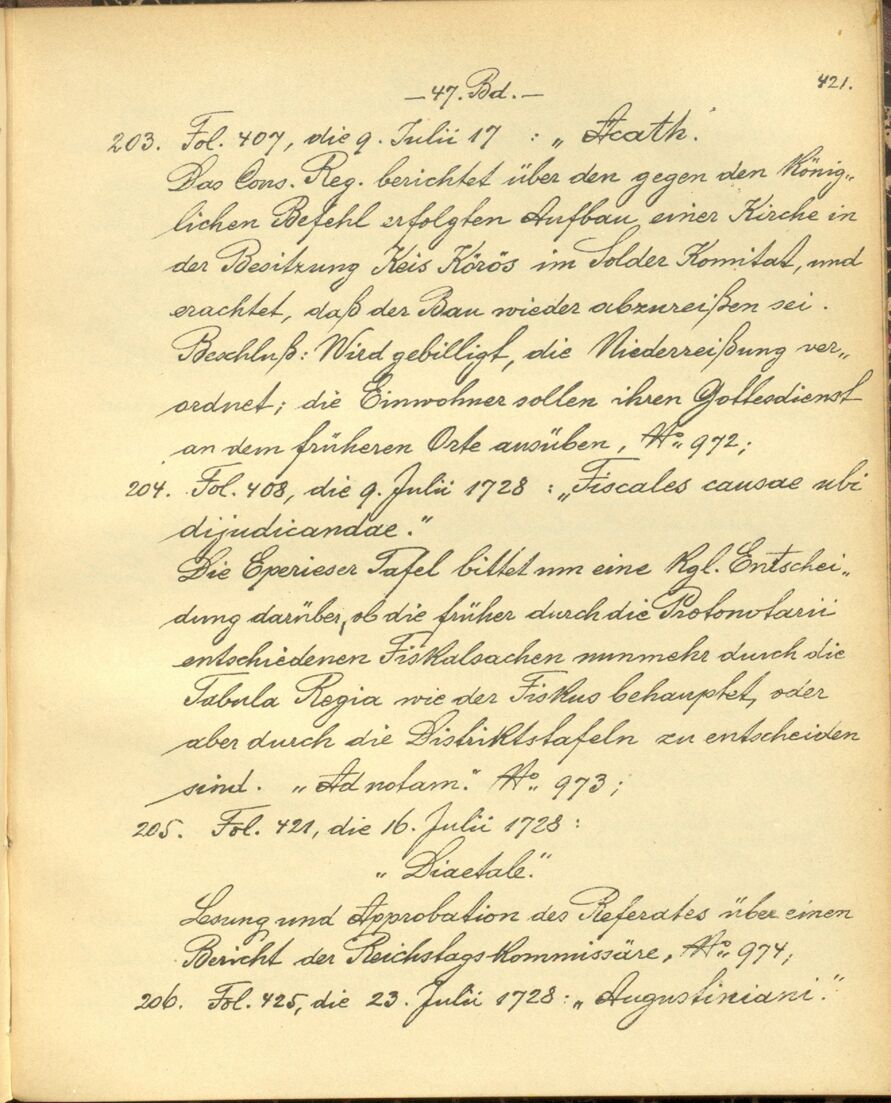 421.
— 47. Bd. —
203. Fol. 407, die 9. Julii 17 : „Acath.
Das Cons. Reg. berichtet über den gegen den König„
lichen Befehl erfolgten Aufbau einer Kirche in
der Besitzung Keis Körös im Solder Komitat, und
erachtet, daß der Bau wieder abzureißen sei.
Beschluß: Wird gebilligt, die Niederreißung ver„
ordnet; die Einwohner sollen ihren Gottesdienst
an dem früheren Orte ausüben, No. 972;
204. Fol. 408, die 9. Julii 1728 : „Fiscales causae ubi
dijudicandae."
Die Eperieser Tafel bittet um eine Kgl. Entschei„
dung darüber, ob die früher durch die Protonotarii
entschiedenen Fiskalsachen nunmehr durch die
Tabula Regia wie der Fiskus behauptet, oder
aber durch die Distriktstafeln zu entscheiden
sind. „Ad notam." No. 973;
205. Fol. 421, die 16. Julii 1728 :
„Diaetale."
Lesung und Approbation des Referates über einen
Bericht der Reichstags-Kommissäre, No. 974;
206. Fol. 425, die 23. Julii 1728 : „Augustiniani."